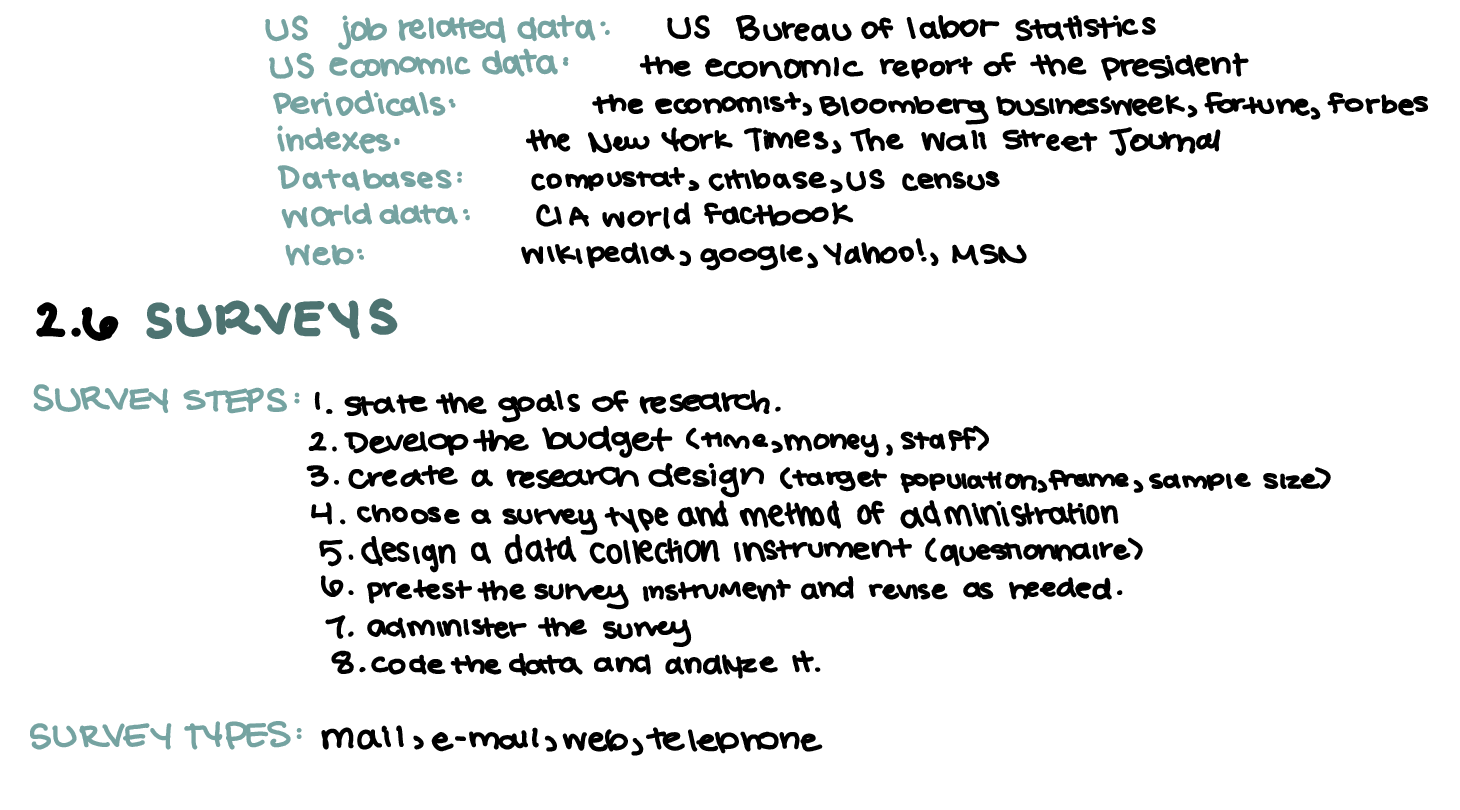 US job related data: US Bureau of labor statistics
US economic data: the economic report of the president
Periodicals: the economist, Bloomberg businessweek, fortune, forbes
indexes: the New York Times, The Wall Street Journal
Databases: compustat, citibase, US census
World data: CIA world factbook
Web: wikipedia, google, Yahoo!, MSN
2.6 SURVEYS
SURVEY STEPS: 1. state the goals of research.
2. Develop the budget (time, money, staff)
3. create a research design (target population, frame, sample size)
4. choose a survey type and method of administration
5. design a data collection instrument (questionnaire)
6. pretest the survey instrument and revise as needed.
7. administer the survey
8. code the data and analyze it.
SURVEY TYPES: mail, e-mail, web, telephone